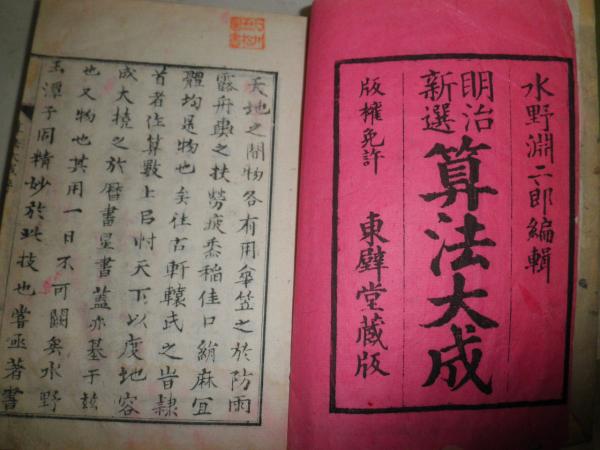 水野淵二郎編輯
明治
新選
算法大成
版權免許
東壁堂藏版
天地之間物各有用傘笠之於防雨
露舟輿之扶勞疲黍稲佳口絹麻宜
體均是物也矣往古軒轅氏之旹隷
首者作算數上自忖天下以度地容
成大撓之於暦書星書蓋亦基于玆
也又物也其用一日不可闕矣水野
玉潭子同精妙於此技也嘗亟著書